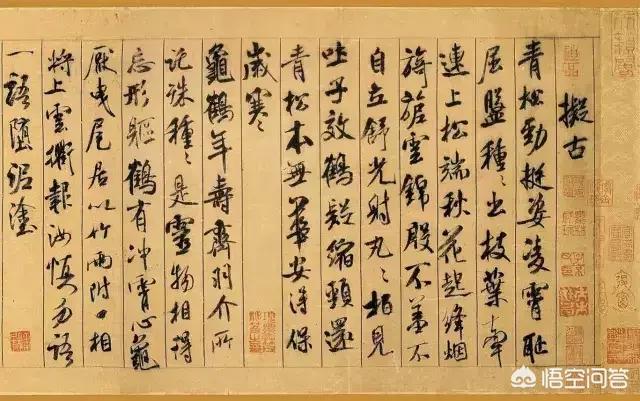 擬古
青松勁挺姿凌霄恥
屈盤種々出枝葉牽
連上松端秋花起絳烟
旖旎雲錦殷不羞不
自立舒光射丸々栢見
吐子效鶴疑縮頸還
青松本無華安得保
歲寒々
龜鶴年壽齊羽介所
託殊種々是靈物相得
忘形軀鶴有冲霄心龜
厭曳尾居以竹兩附口相
將上雲衢報汝慎勿語
一語墮泥塗
悟空问答